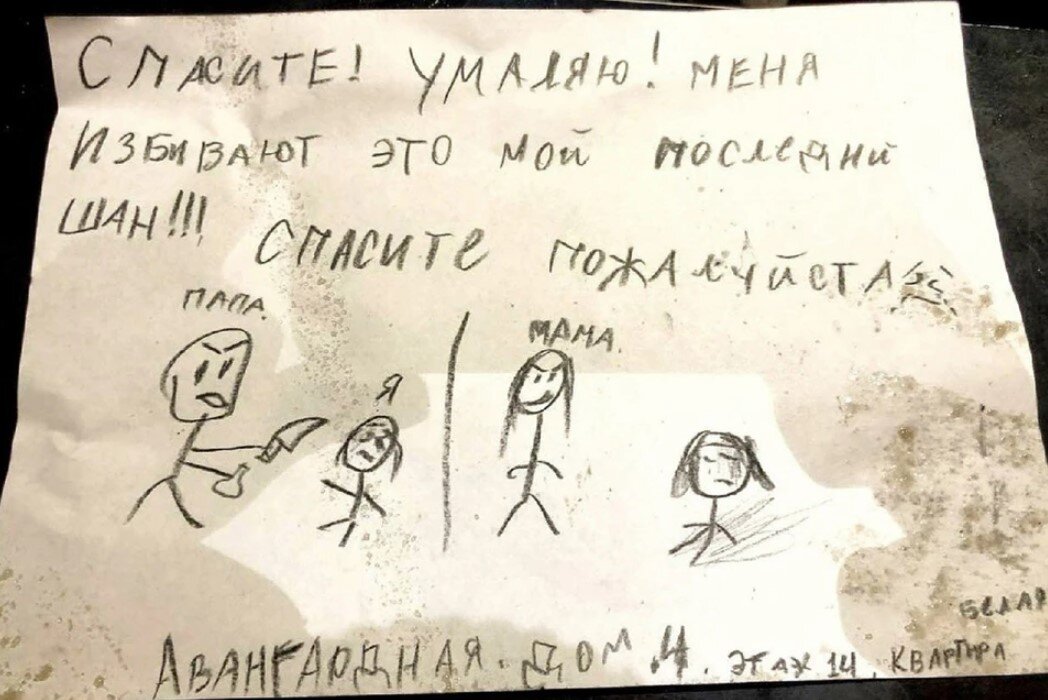 СПАСИТЕ! УМАЛЯЮ! МЕНЯ
ИЗБИВАЮТ ЭТО МОЙ ПОСЛЕДНИ
ШАН!!!
СПАСИТЕ ПОЖАЛУЙСТА
ПАПА.
Я
МАМА.
БЕЛАЯ
ДОМ 4. ЭТАЖ 14. КВАРТИРА